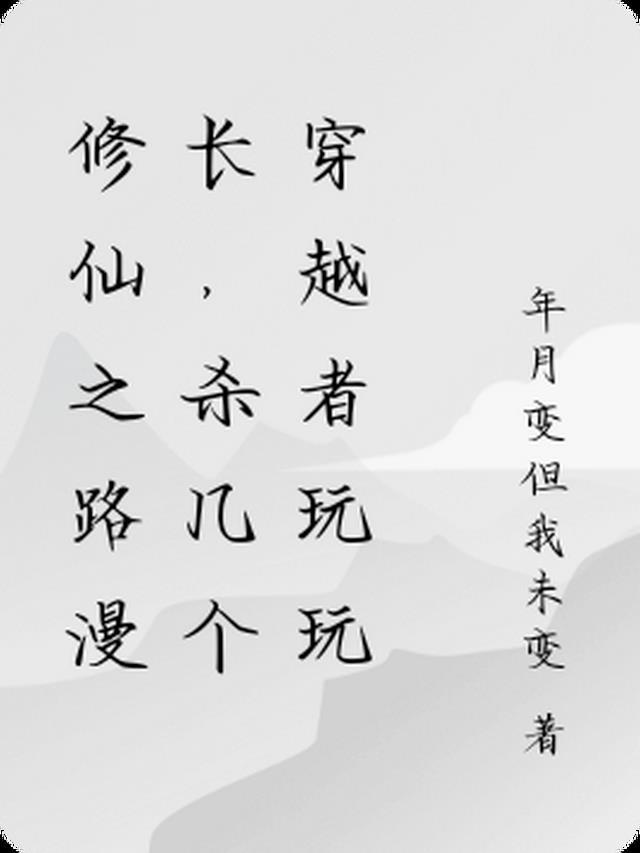 修仙之路漫
长，杀几个
穿越者玩玩
年月变但我未变 著